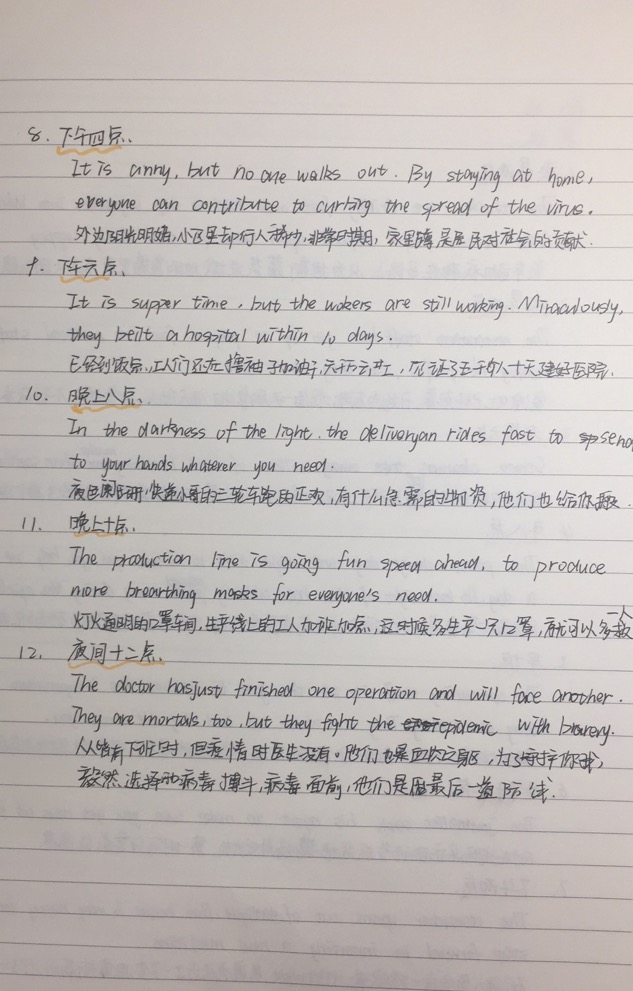 8. 下午四点.
It is cinny, but no one walks out. By staying at home,
everyone can contribute to curbing the spread of the virus.
外边阳光明媚,小区里却行人稀少,非常时期,家里蹲是居民对社会的贡献.
9. 下午六点.
It is supper time, but the wokers are still working. Miraculously,
they beilt a hospital within 10 days.
已经到饭点,工人们还在撸袖子加油干,天干云上,见证了五千多人十天建好医院.
10. 晚上八点.
In the darkness of the light. the deliveryan rides fast to send
to your hands whatever you need.
夜色阑珊,快递小哥的三轮车跑的正欢,有什么急需的物资,他们也给你搬.
11. 晚上十点.
The production line is going fun speed ahead, to produce
more brearthing masks for everyone's need.
灯火通明的口罩车间,生产线上的工人加班加点,这时候多生产一只口罩,就可以多救一人
12. 夜间十二点.
The doctor hasjust finished one operation and will face another.
They are mortals, too, but they fight the epidemic with bravery.
人人皆有下班时,但疫情时医生没有。他们也是血肉之躯,为了守护你我,
毅然选择和病毒搏斗,病毒面前,他们是最后一道防线.